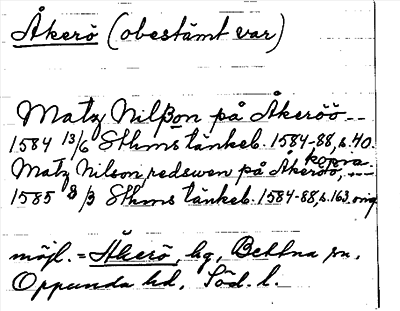 Åkerö (obestämt var)
Matz Nilsson på Åkeröö --
1584 13/6 Sthms tänkeb. 1584-88, s. 40.
kopra
Matz Nilson, redswen på Åkeröö, ---
1585 8/3 Sthms tänkeb. 1584-88, s. 163 orig
möjl. = Åkerö, hg, Bettna sn,
Oppunda hd, Söd. l.